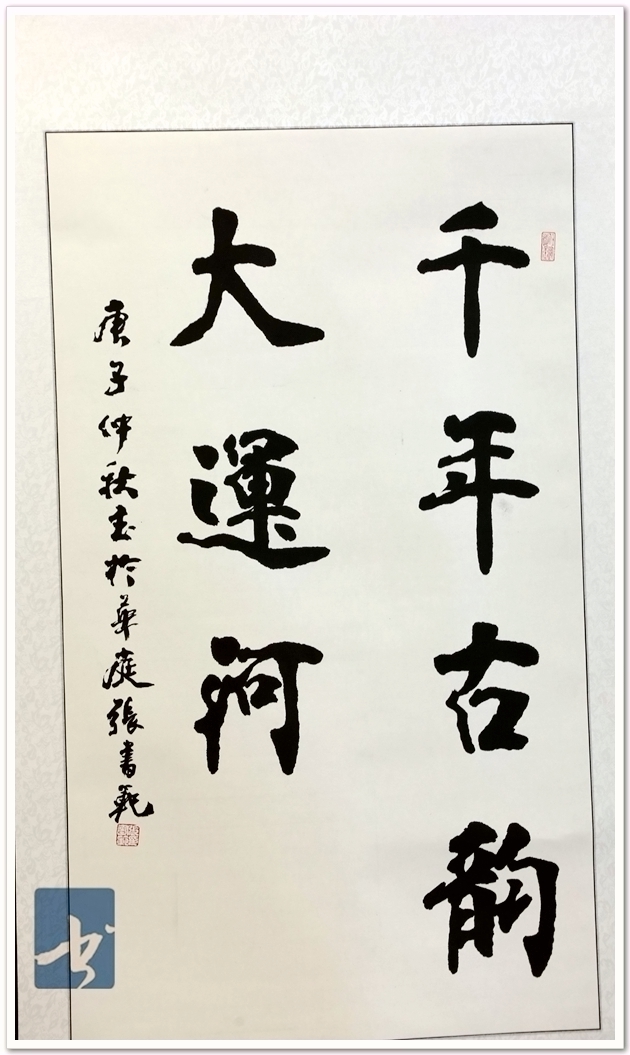 千年古韵
大運河
庚子仲秋書於華庭張書範
书